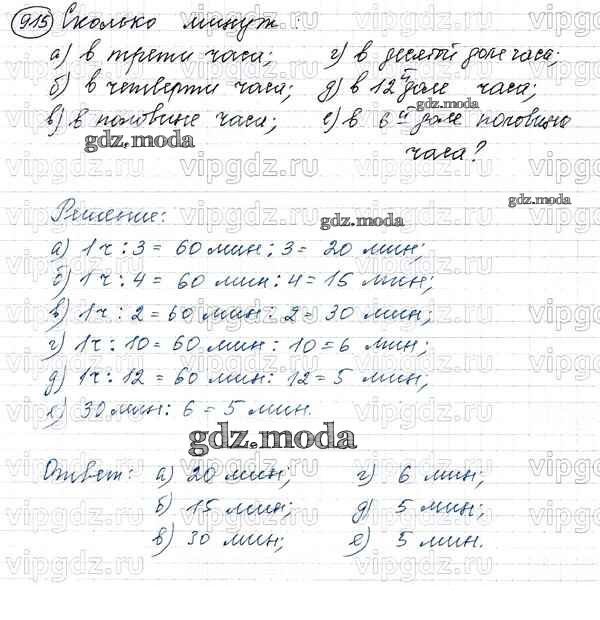 915 Сколько минут:
а) в трети часа; г) в десятой доле часа;
б) в четверти часа; д) в 12й доле часа;
в) в половине часа; е) в 6й доле половины
часа?
gdz.moda
gdz.moda
gdz.moda
gdz.moda
Решение:
а) 1ч : 3 = 60 мин : 3 = 20 мин;
б) 1ч : 4 = 60 мин : 4 = 15 мин;
в) 1ч : 2 = 60 мин : 2 = 30 мин;
г) 1ч : 10 = 60 мин : 10 = 6 мин;
д) 1ч : 12 = 60 мин : 12 = 5 мин;
е) 30 мин : 6 = 5 мин.
gdz.moda
Ответ: а) 20 мин; г) 6 мин;
б) 15 мин; д) 5 мин;
в) 30 мин; е) 5 мин.
vipgdz.ru vipgdz.ru vipgdz.ru vipgdz.ru